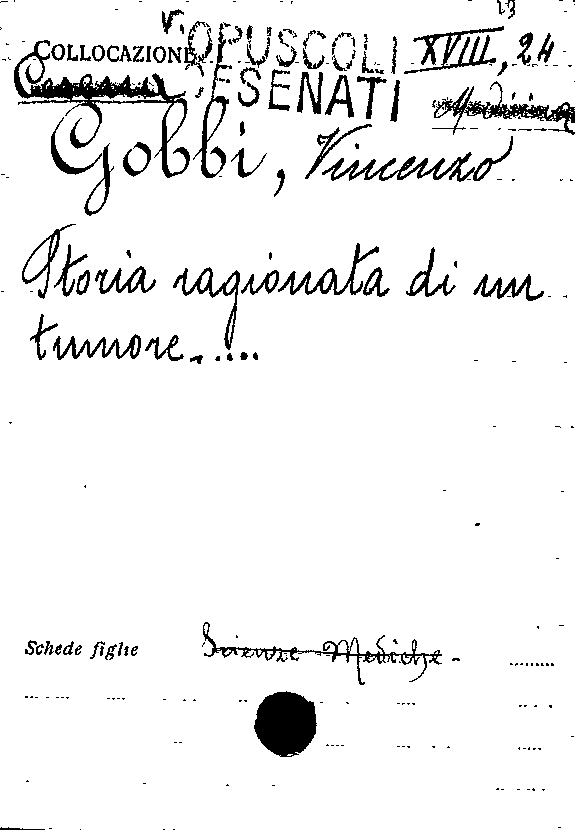 23
V. OPUSCOLI XVIII, 24
COLLOCAZIONE
CESENATI
Gobbi, Vincenzo
Storia ragionata di un
tumore.....
Schede figlie Scienze Mediche -